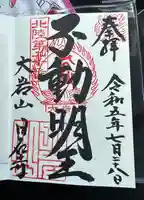 奉拝
令和五年七月二十八日
北陸第
不動明王
大岩山 日石寺